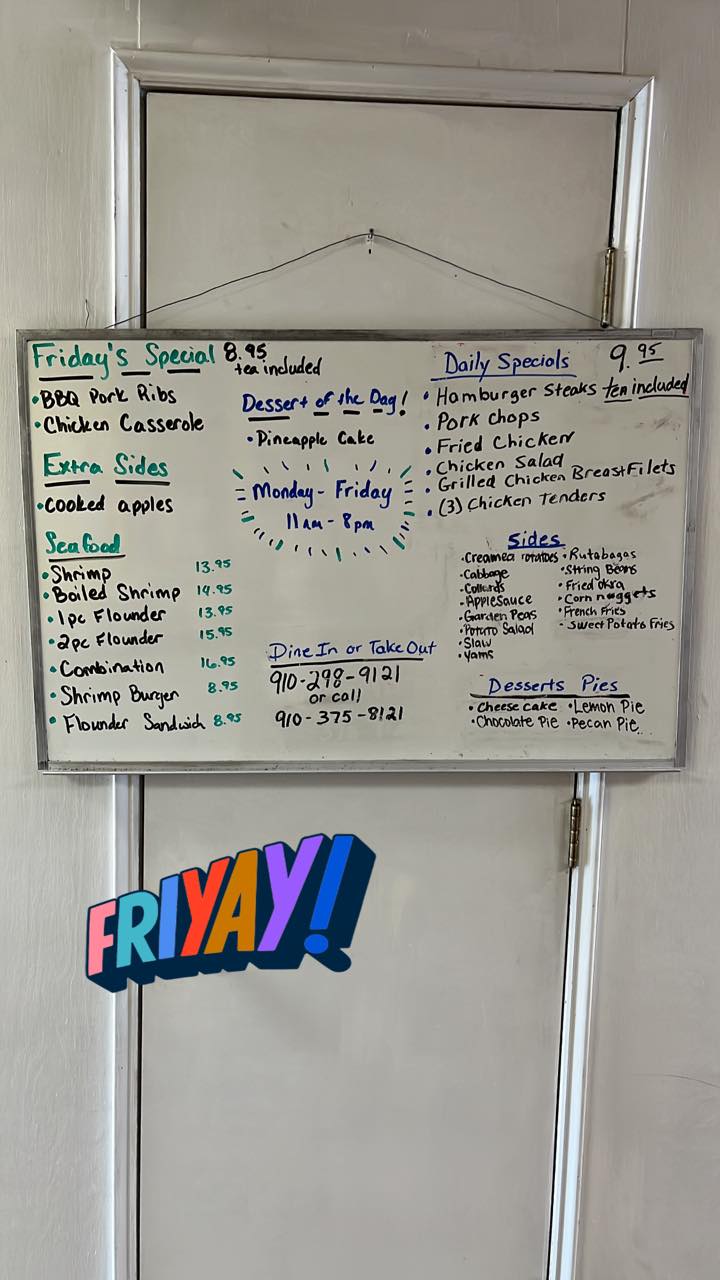 Friday's Special 8.95
tea included
•BBQ Pork Ribs
•Chicken Casserole
Extra Sides
•Cooked apples
Seafood
•Shrimp 13.95
•Boiled Shrimp 14.95
•1pc Flounder 13.95
•2pc Flounder 15.95
•Combination 16.95
•Shrimp Burger 8.95
•Flounder Sandwich 8.95
Dessert of the Day!
•Pineapple Cake
Monday - Friday
11am - 8pm
Dine In or Take Out
910-298-9121
or call
910-375-8121
Daily Specials 9.95
•Hamburger Steaks tea included
•Pork Chops
•Fried Chicken
•Chicken Salad
•Grilled Chicken Breast Filets
•(3) Chicken Tenders
Sides
•Creamed Potatoes •Rutabagas
•Cabbage •String Beans
•Collards •Fried Okra
•Applesauce •Corn nuggets
•Garden Peas •French Fries
•Potato Salad - Sweet Potato Fries
•Slaw
•Yams
Desserts Pies
•Cheese cake •Lemon Pie
•Chocolate Pie •Pecan Pie
FRIYAY!